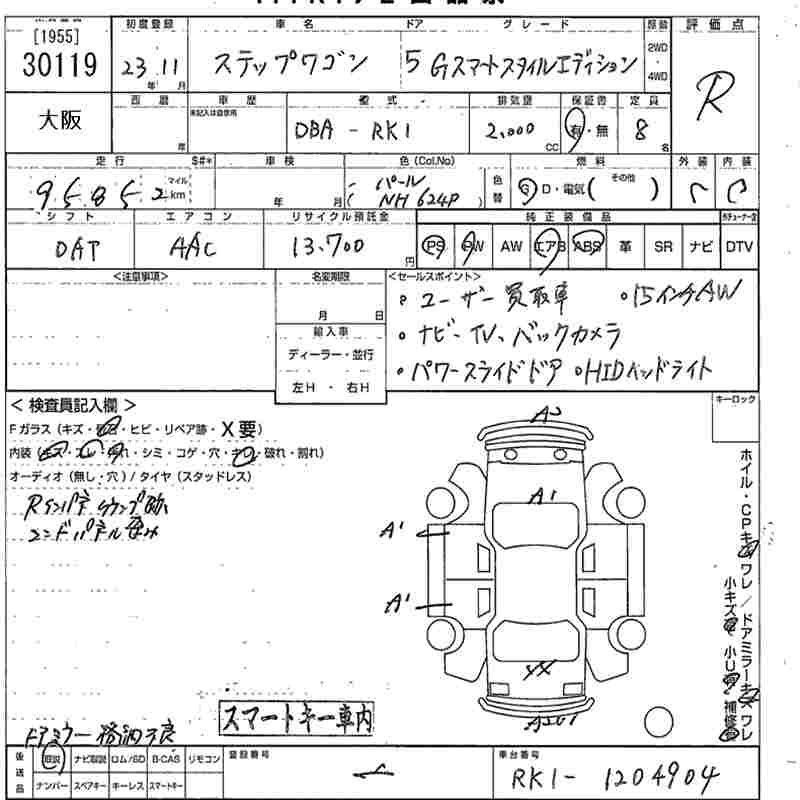 [1955]
30119
大阪
初度登録 車名 ドア グレード 原動 評価点
23年11月 ステップワゴン 5 Gスマートスタイルエディション 2WD 4WD R
西暦 車歴 型式 排気量 保証書 定員
年 未記入は自家用 DBA-RK1 2,000cc 有・無 8名
走行 S#* 車検 色(Col.No) 燃料 外装 内装
95852 マイル km 年 月 パール NH624P 色替 G D・電気( その他 ) C C
シフト エアコン リサイクル預託金 純正装備品
DAT AAC 13,700円 PS PW AW エアB ABS 革 SR ナビ DTV
<注意事項> 名変期限 <セールスポイント>
月 日
輸入車
ディーラー・並行
左H・右H
・ユーザー買取車 ・15インチAW
・ナビ-TV、バックカメラ
・パワースライドドア ・HIDヘッドライト
キーロック
<検査員記入欄>
Fガラス(キズ・飛石・ヒビ・リペア跡・X要)
内装(キズ・スレ・汚れ・シミ・コゲ・穴・キレ・破れ・割れ)
オーディオ(無し・穴)/タイヤ(スタッドレス)
エンドパネル歪み
A1
A1
A1
XX
ホイル・CPキズワレ/ドアミラーキズワレ
小キズ 小U 補修
ドアミラー格納不良
スマートキー車内
後送品 取説 ナビ取説 ロム/SD B-CAS リモコン 登録番号 車台番号
ナンバー スペアキー キーレス スマートキー RK1-1204904